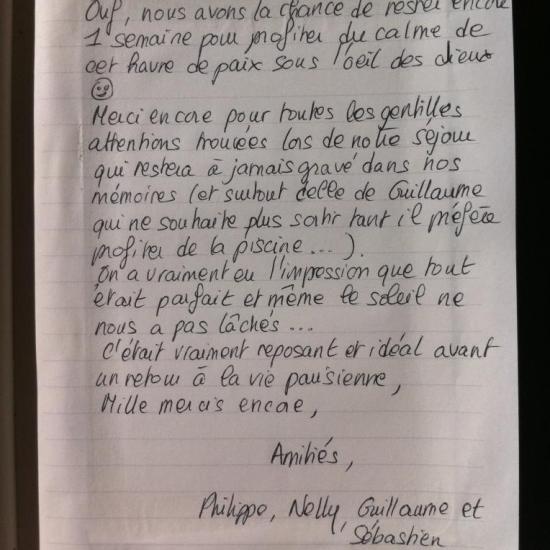 Ouf, nous avons la chance de rester encore
1 semaine pour profiter du calme de
cet havre de paix sous l'oeil des dieux
Merci encore pour toutes les gentilles
attentions trouvées lors de notre séjour
qui restera à jamais gravé dans nos
mémoires (et surtout celle de Guillaume
qui ne souhaite plus sortir tant il préfère
profiter de la piscine...).
On a vraiment eu l'impression que tout
était parfait et même le soleil ne
nous a pas lâchés...
C'était vraiment reposant et idéal avant
un retour à la vie parisienne,
Mille mercis encore,
Amitiés,
Philippe, Nelly, Guillaume et
Sébastien